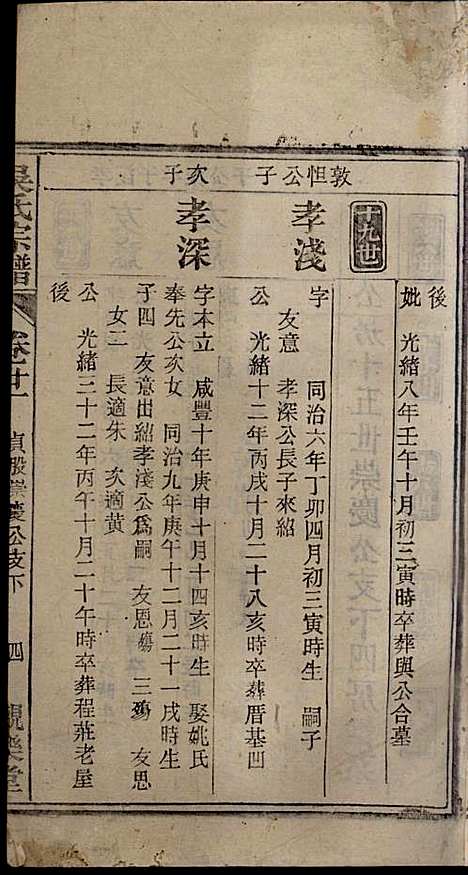 妣　光緒八年壬午十月初三寅時卒葬與公合墓
後
十九世
敦怛公子
孝淺
字　同治六年丁卯四月初三寅時生　嗣子
友意　孝深公長子來紹
公　光緒十二年丙戌十月二十八亥時卒葬厝基凹
次子
孝深
字本立　咸豐十年庚申十月十四亥時生　娶姚氏
奉先公次女　同治九年庚午十二月二十一戌時生
子四　友意出紹孝淺公爲嗣　友恩殤　三殤　友思
女二　長適朱　次適黃
公　光緒三十二年丙午十月二十午時卒葬程莊老屋
後
吳氏宗譜
卷廿一
貞股崇慶公支下
四
親樂堂